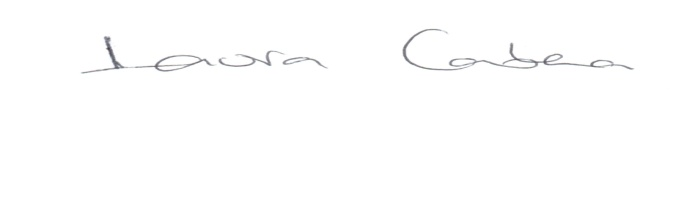 Laura Cabea